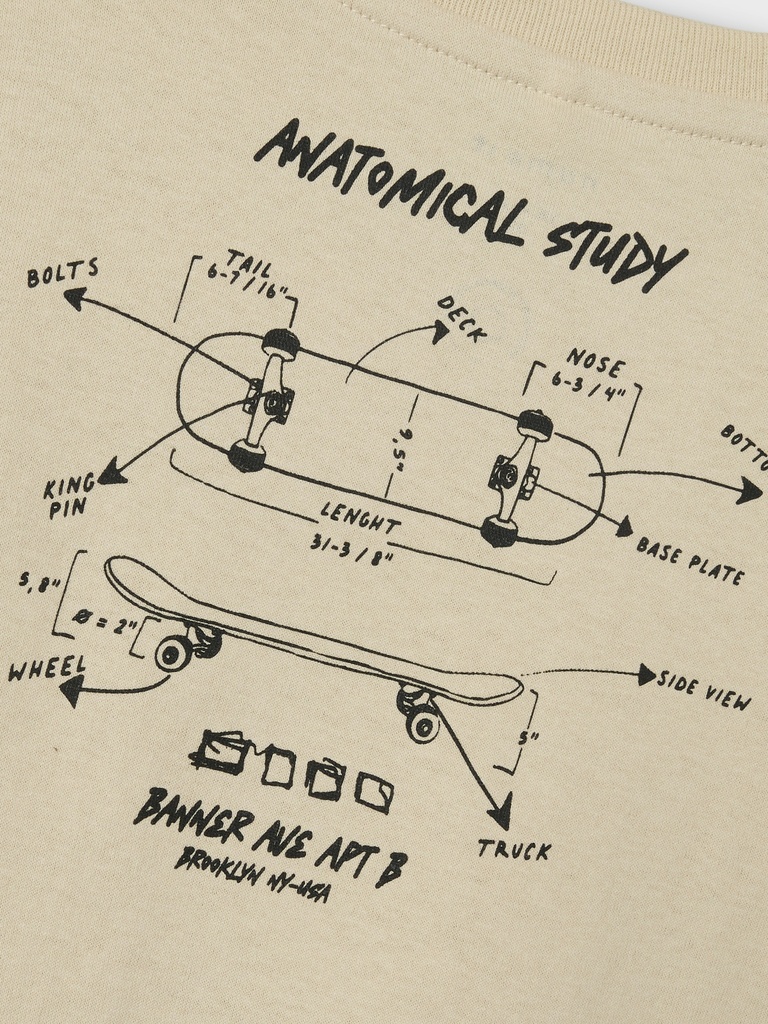 ANATOMICAL STUDY
BOLTS
TAIL
6-7/16"
DECK
NOSE
6-3/4"
9.5"
KING
PIN
LENGHT
31-3/8"
BASE PLATE
5,8"
Ø = 2"
WHEEL
SIDE VIEW
5"
TRUCK
BANNER AVE APT B
BROOKLYN NY-USA